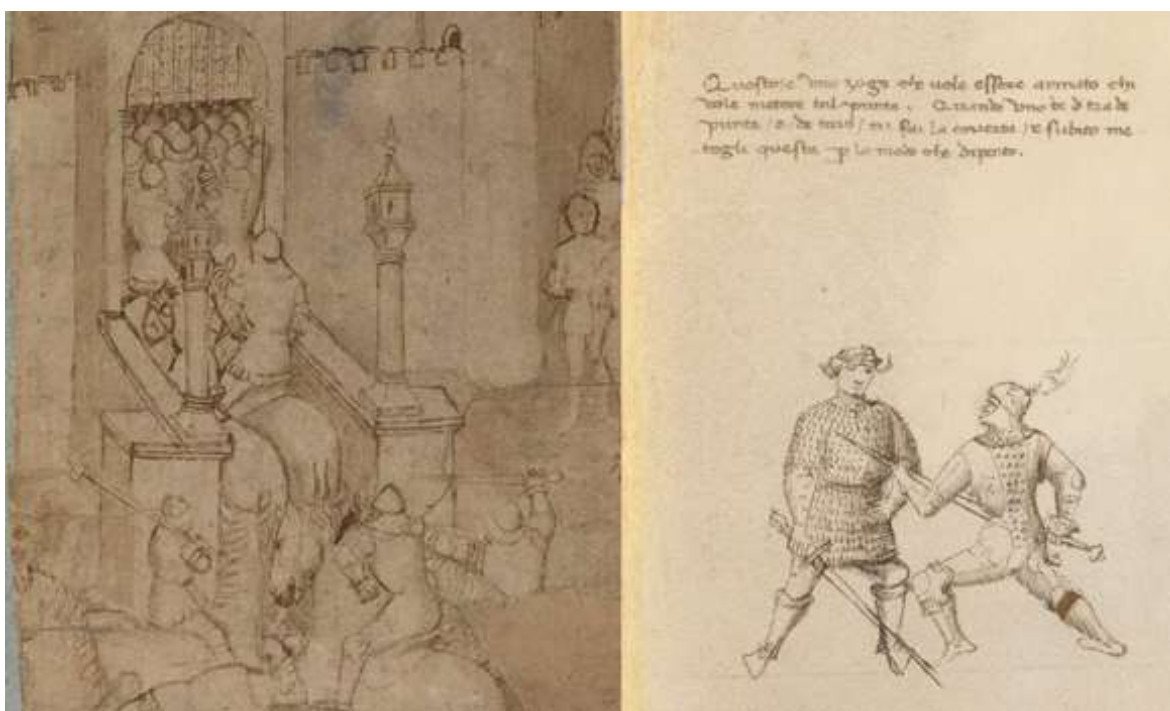 Questo sie uno zogo che uole essere armato chi
uole metere tal punta . Quando uno te tra de
punta / o de taio / tu fai la couerta / e subito me
togli questa p lo modo che depento.